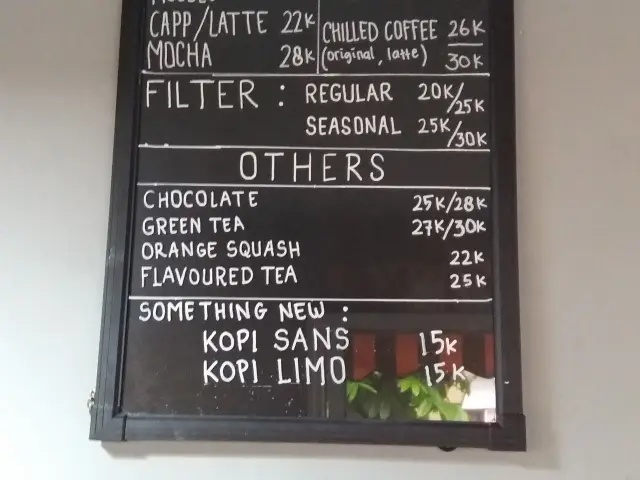 CAPP/LATTE 22K
MOCHA 28K
CHILLED COFFEE 26K
(original, latte) 30K
FILTER : REGULAR 20K/25K
SEASONAL 25K/30K
OTHERS
CHOCOLATE 25K/28K
GREEN TEA 27K/30K
ORANGE SQUASH 22K
FLAVOURED TEA 25K
SOMETHING NEW :
KOPI SANS 15K
KOPI LIMO 15K